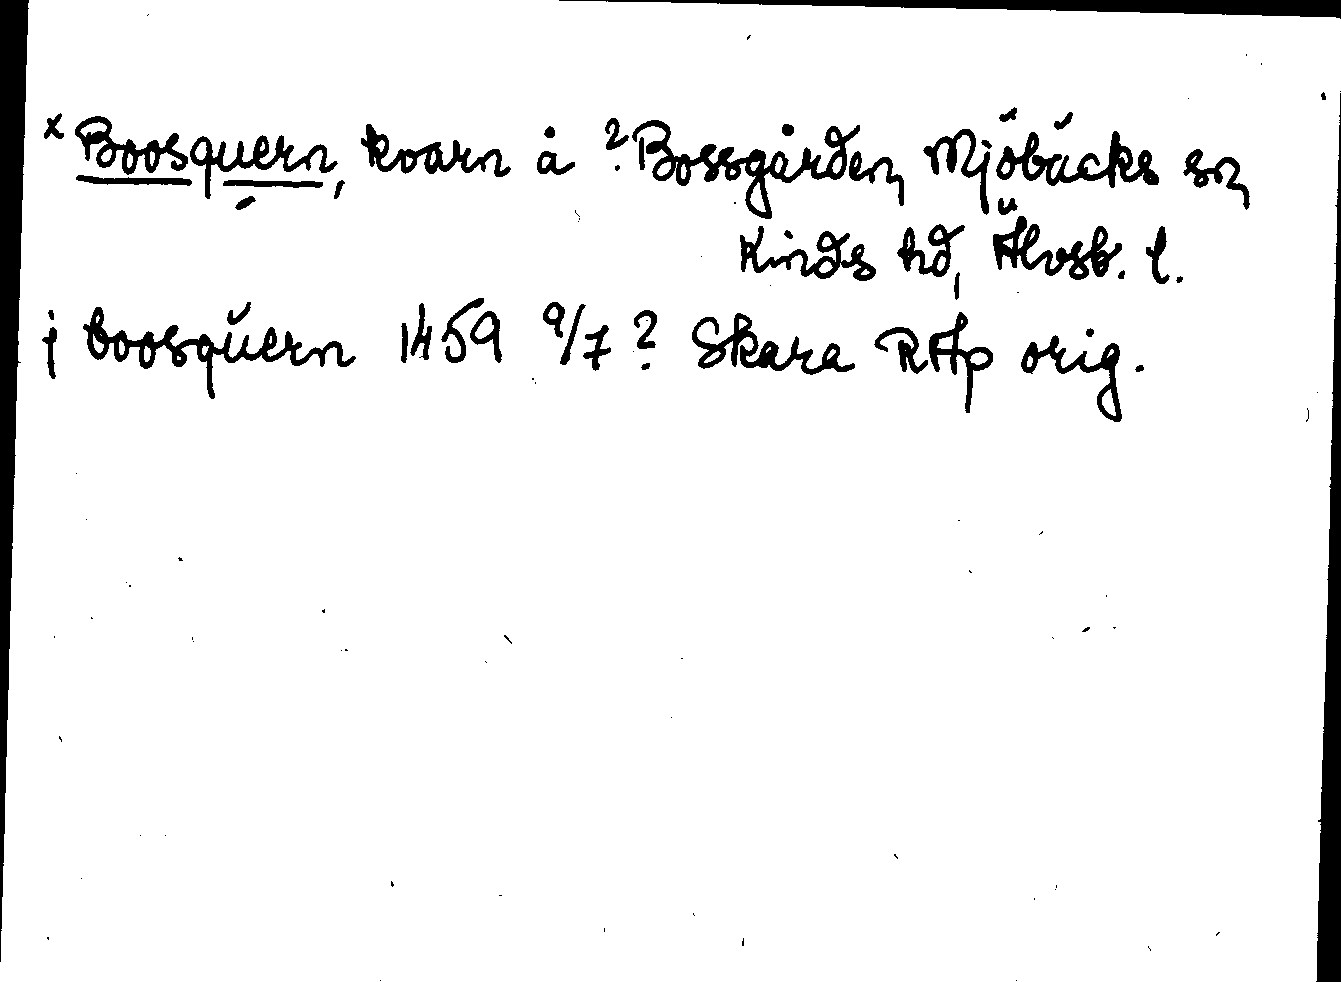 x Boosquern, kvarn å ? Bossgården, Mjöbäcks sn,
Kinds hd, Älvsb. l.
j boosqŭern 1459 9/7 ? Skara RAp orig.